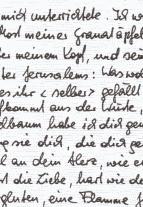 mich unterrichtete. Ich w
Most meiner Granatäpfel
ter meinem Kopf, und sein
ter Jerusalems: Was wol
es ihr < selber > gefällt
fkommt aus der Wüste,
lbaum habe ich dich gew
ng sie dich, die dich ge
l an dein Herz, wie ei
st die Liebe, hart wie de
gluten, eine Flamme J